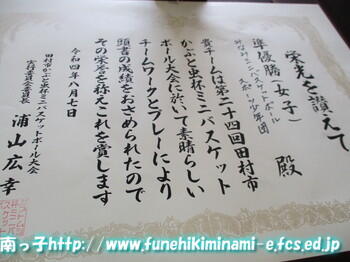 栄光を讃えて
準優勝(女子)
みなみミニバスケットボール
スポーツ少年団 殿
貴チームは第二十四回田村市
かぶと虫杯ミニバスケット
ボール大会に於いて素晴らしい
チームワークとプレーにより
頭書の成績をおさめられたので
その栄誉を称えこれを賞します
令和四年八月七日
田村市かぶと虫杯ミニバスケットボール大会
実行委員会委員長 浦山広幸
南っ子http://www.funehikiminami-e.fcs.ed.jp